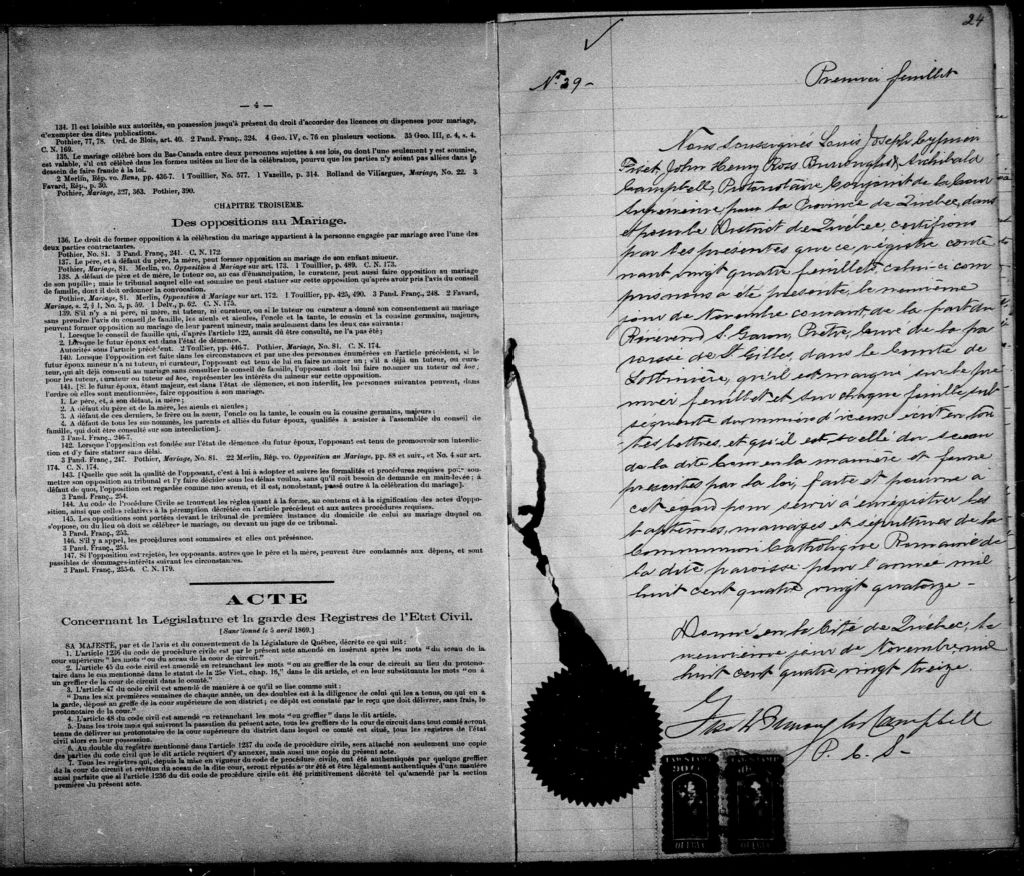 — 4 —
134. Il est loisible aux autorités, en possession jusqu'à présent du droit d'accorder des licences ou dispenses pour mariage,
d'exempter des dites publications.
Pothier, 77, 78. Ord. de Blois, art. 40. 2 Pand. Franç., 324. 4 Geo. IV, c. 76 en plusieurs sections. 35 Geo. III, c. 4, s. 4.
C. N. 169.
135. Le mariage célébré hors du Bas-Canada entre deux personnes sujettes à ses lois, ou dont l'une seulement y est soumise,
est valable, s'il est célébré dans les formes usitées au lieu de la célébration, pourvu que les parties n'y soient pas allées dans le
dessein de faire fraude à la loi.
2 Merlin, Rép. vo. Bans, pp. 436-7. 1 Touillier, No. 577. 1 Vazeille, p. 314. Rolland de Villargues, Mariage, No. 22. 3
Favard, Rép., p. 50.
Pothier, Mariage, 327, 363. Pothier, 390.
CHAPITRE TROISIEME.
Des oppositions au Mariage.
136. Le droit de former opposition à la célébration du mariage appartient à la personne engagée par mariage avec l'une des
deux parties contractantes.
Pothier, No. 81. 3 Pand. Franç., 241. C. N. 172.
137. Le père, et à défaut du père, la mère, peut former opposition au mariage de son enfant mineur.
Pothier, Mariage, 81. Merlin, vo. Opposition à Mariage sur art. 173. 1 Touillier, p. 489. C. N. 173.
138. A défaut de père et de mère, le tuteur ou, au cas d'émancipation, le curateur, peut aussi faire opposition au mariage
de son pupille; mais le tribunal auquel elle est soumise ne peut statuer sur cette opposition qu'après avoir pris l'avis du conseil
de famille, dont il doit ordonner la convocation.
Pothier, Mariage, 81. Merlin, Opposition à Mariage sur art. 172. 1 Touillier, pp. 425, 490. 3 Pand. Franç., 248. 2 Favard,
Mariage, s. 2, § 1, No. 3, p. 59. 1 Delv., p. 62. C. N. 175.
139. S'il n'y a ni père, ni mère, ni tuteur, ni curateur, ou si le tuteur ou curateur a donné son consentement au mariage
sans prendre l'avis du conseil de famille, les aieuls et aieules, l'oncle et la tante, le cousin et la cousine germains, majeurs,
peuvent former opposition au mariage de leur parent mineur, mais seulement dans les deux cas suivants:
1. Lorsque le conseil de famille qui, d'après l'article 122, aurait dû être consulté, ne l'a pas été;
2. Lorsque le futur époux est dans l'état de démence.
Autorités sous l'article précédent. 2 Touillier, pp. 446-7. Pothier, Mariage, No. 81. C. N. 174.
140. Lorsque l'opposition est faite dans les circonstances et par une des personnes énumérées en l'article précédent, si le
futur époux mineur n'a ni tuteur, ni curateur, l'opposant est tenu de lui en faire nommer un; s'il a déjà un tuteur, ou cura-
teur, qui ait déjà consenti au mariage sans consulter le conseil de famille, l'opposant doit lui faire nommer un tuteur ad hoc,
pour les tuteur, curateur ou tuteur ad hoc, représenter les intérêts du mineur sur cette opposition.
141. [Si le futur époux, étant majeur, est dans l'état de démence, et non interdit, les personnes suivantes peuvent, dans
l'ordre où elles sont mentionnées, faire opposition à son mariage.
1. Le père, et, à son défaut, la mère;
2. A défaut du père et de la mère, les aieuls et aieules;
3. A défaut de ces derniers, le frère ou la sœur, l'oncle ou la tante, le cousin ou la cousine germains, majeurs;
4. A défaut de tous les sus-nommés, les parents et alliés du futur époux, qualifiés à assister à l'assemblée du conseil de
famille, qui doit être consulté sur son interdiction.]
3 Pand. Franç., 246-7.
142. Lorsque l'opposition est fondée sur l'état de démence du futur époux, l'opposant est tenu de promouvoir son interdic-
tion et d'y faire statuer sans délai.
3 Pand. Franç., 247. Pothier, Mariage, No. 81. 22 Merlin, Rép. vo. Opposition au Mariage, pp. 88 et suiv., et No. 4 sur art.
174. C. N. 174.
143. [Quelle que soit la qualité de l'opposant, c'est à lui à adopter et suivre les formalités et procédures requises pour sou-
mettre son opposition au tribunal et l'y faire décider sous les délais voulus, sans qu'il soit besoin de demande en main-levée; à
défaut de quoi, l'opposition est regardée comme non avenue, et il est, nonobstant, passé outre à la célébration du mariage].
3 Pand. Franç., 254.
144. Au code de Procédure Civile se trouvent les règles quant à la forme, au contenu et à la signification des actes d'oppo-
sition, ainsi que celles relatives à la péremption décrétée en l'article précédent et aux autres procédures requises.
145. Les oppositions sont portées devant le tribunal de première instance du domicile de celui au mariage duquel on
s'oppose, ou du lieu où doit se célébrer le mariage, ou devant un juge de ce tribunal.
3 Pand. Franç., 252.
146. S'il y a appel, les procédures sont sommaires et elles ont préséance.
3 Pand. Franç., 253.
147. Si l'opposition est rejetée, les opposants, autres que le père et la mère, peuvent être condamnés aux dépens, et sont
passibles de dommages-intérêts suivant les circonstances.
3 Pand. Franç., 255-6. C. N. 179.
ACTE
Concernant la Législature et la garde des Registres de l'Etat Civil.
[Sanctionné le 5 avril 1869.]
SA MAJESTE, par et de l'avis et du consentement de la Législature de Québec, décrète ce qui suit:
1. L'article 1236 du code de procédure civile est par le présent acte amendé en insérant après les mots "du sceau de la
cour supérieure" les mots "ou du sceau de la cour de circuit."
2. L'article 45 du code civil est amendé en retranchant les mots "ou au greffier de la cour de circuit au lieu du protono-
taire dans le cas mentionné dans le statut de la 25e Vict., chap. 16," dans le dit article, et en leur substituant les mots "ou à
un greffier de la cour de circuit dans le comté."
3. L'article 47 du code civil est amendé de manière à ce qu'il se lise comme suit:
"Dans les six premières semaines de chaque année, un des doubles est à la diligence de celui qui les a tenus, ou qui en a
la garde, déposé au greffe de la cour supérieure de son district; ce dépôt est constaté par le reçu que doit délivrer, sans frais, le
protonotaire de la cour."
4. L'article 48 du code civil est amendé en retranchant les mots "un greffier" dans le dit article.
5. Dans les trois mois qui suivront la passation du présent acte, tous les greffiers de la cour de circuit dans tout comté seront
tenus de délivrer au protonotaire de la cour supérieure du district dans lequel ce comté est situé, tous les registres de l'état
civil alors en leur possession.
6. Au double du registre mentionné dans l'article 1237 du code de procédure civile, sera attaché non seulement une copie
des parties du code civil que le dit article requiert d'y annexer, mais aussi une copie du présent acte.
7. Tous les registres qui, depuis la mise en vigueur du code de procédure civil, ont été authentiqués par quelque greffier
de la cour de circuit et revêtus du sceau de la dite cour, seront réputés avoir été et être légalement authentiqués d'une manière
aussi parfaite que si l'article 1236 du dit code de procédure civile eût été primitivement décrété tel qu'amendé par la section
première du présent acte.
24
No. 29 –
Premier feuillet
Nous Soussignés Louis Joseph Cyprien
Fiset, John Henry Ross Burroughs, Archibald
Campbell, Protonotaire Conjoint de la Cour
Supérieure pour la Province de Québec, dans
et pour le District de Québec certifions
par les présentes que ce régistre conte
nant vingt quatre feuillets, celui-ci com
pris nous a été présenté, le neuvième
jour de Novembre courant de la part du
Révérend S. Garon, Prêtre, Curé de la pa
roisse de St Gilles, dans le Comté de
Lotbinière, qu'il est marqué sur le pre
mier feuillet et sur chaque feuillet sub
séquent du numéro d'icelui écrit en tou
tes lettres, et qu'il est scellé du sceau
de la dite Cour en la manière et forme
prescrites par la loi, faite et pourvue à
cet égard pour servir à enrégistrer les
baptêmes, mariages et sépultures de la
Communion Catholique Romaine de
la dite paroisse pour l'année mil
huit cent quatre vingt quatorze –
Donné, en la Cité de Québec, le
neuvième jour de Novembre mil
huit cent quatre vingt treize.
Campbell
P. C. S –
LAW STAMP
QUEBEC